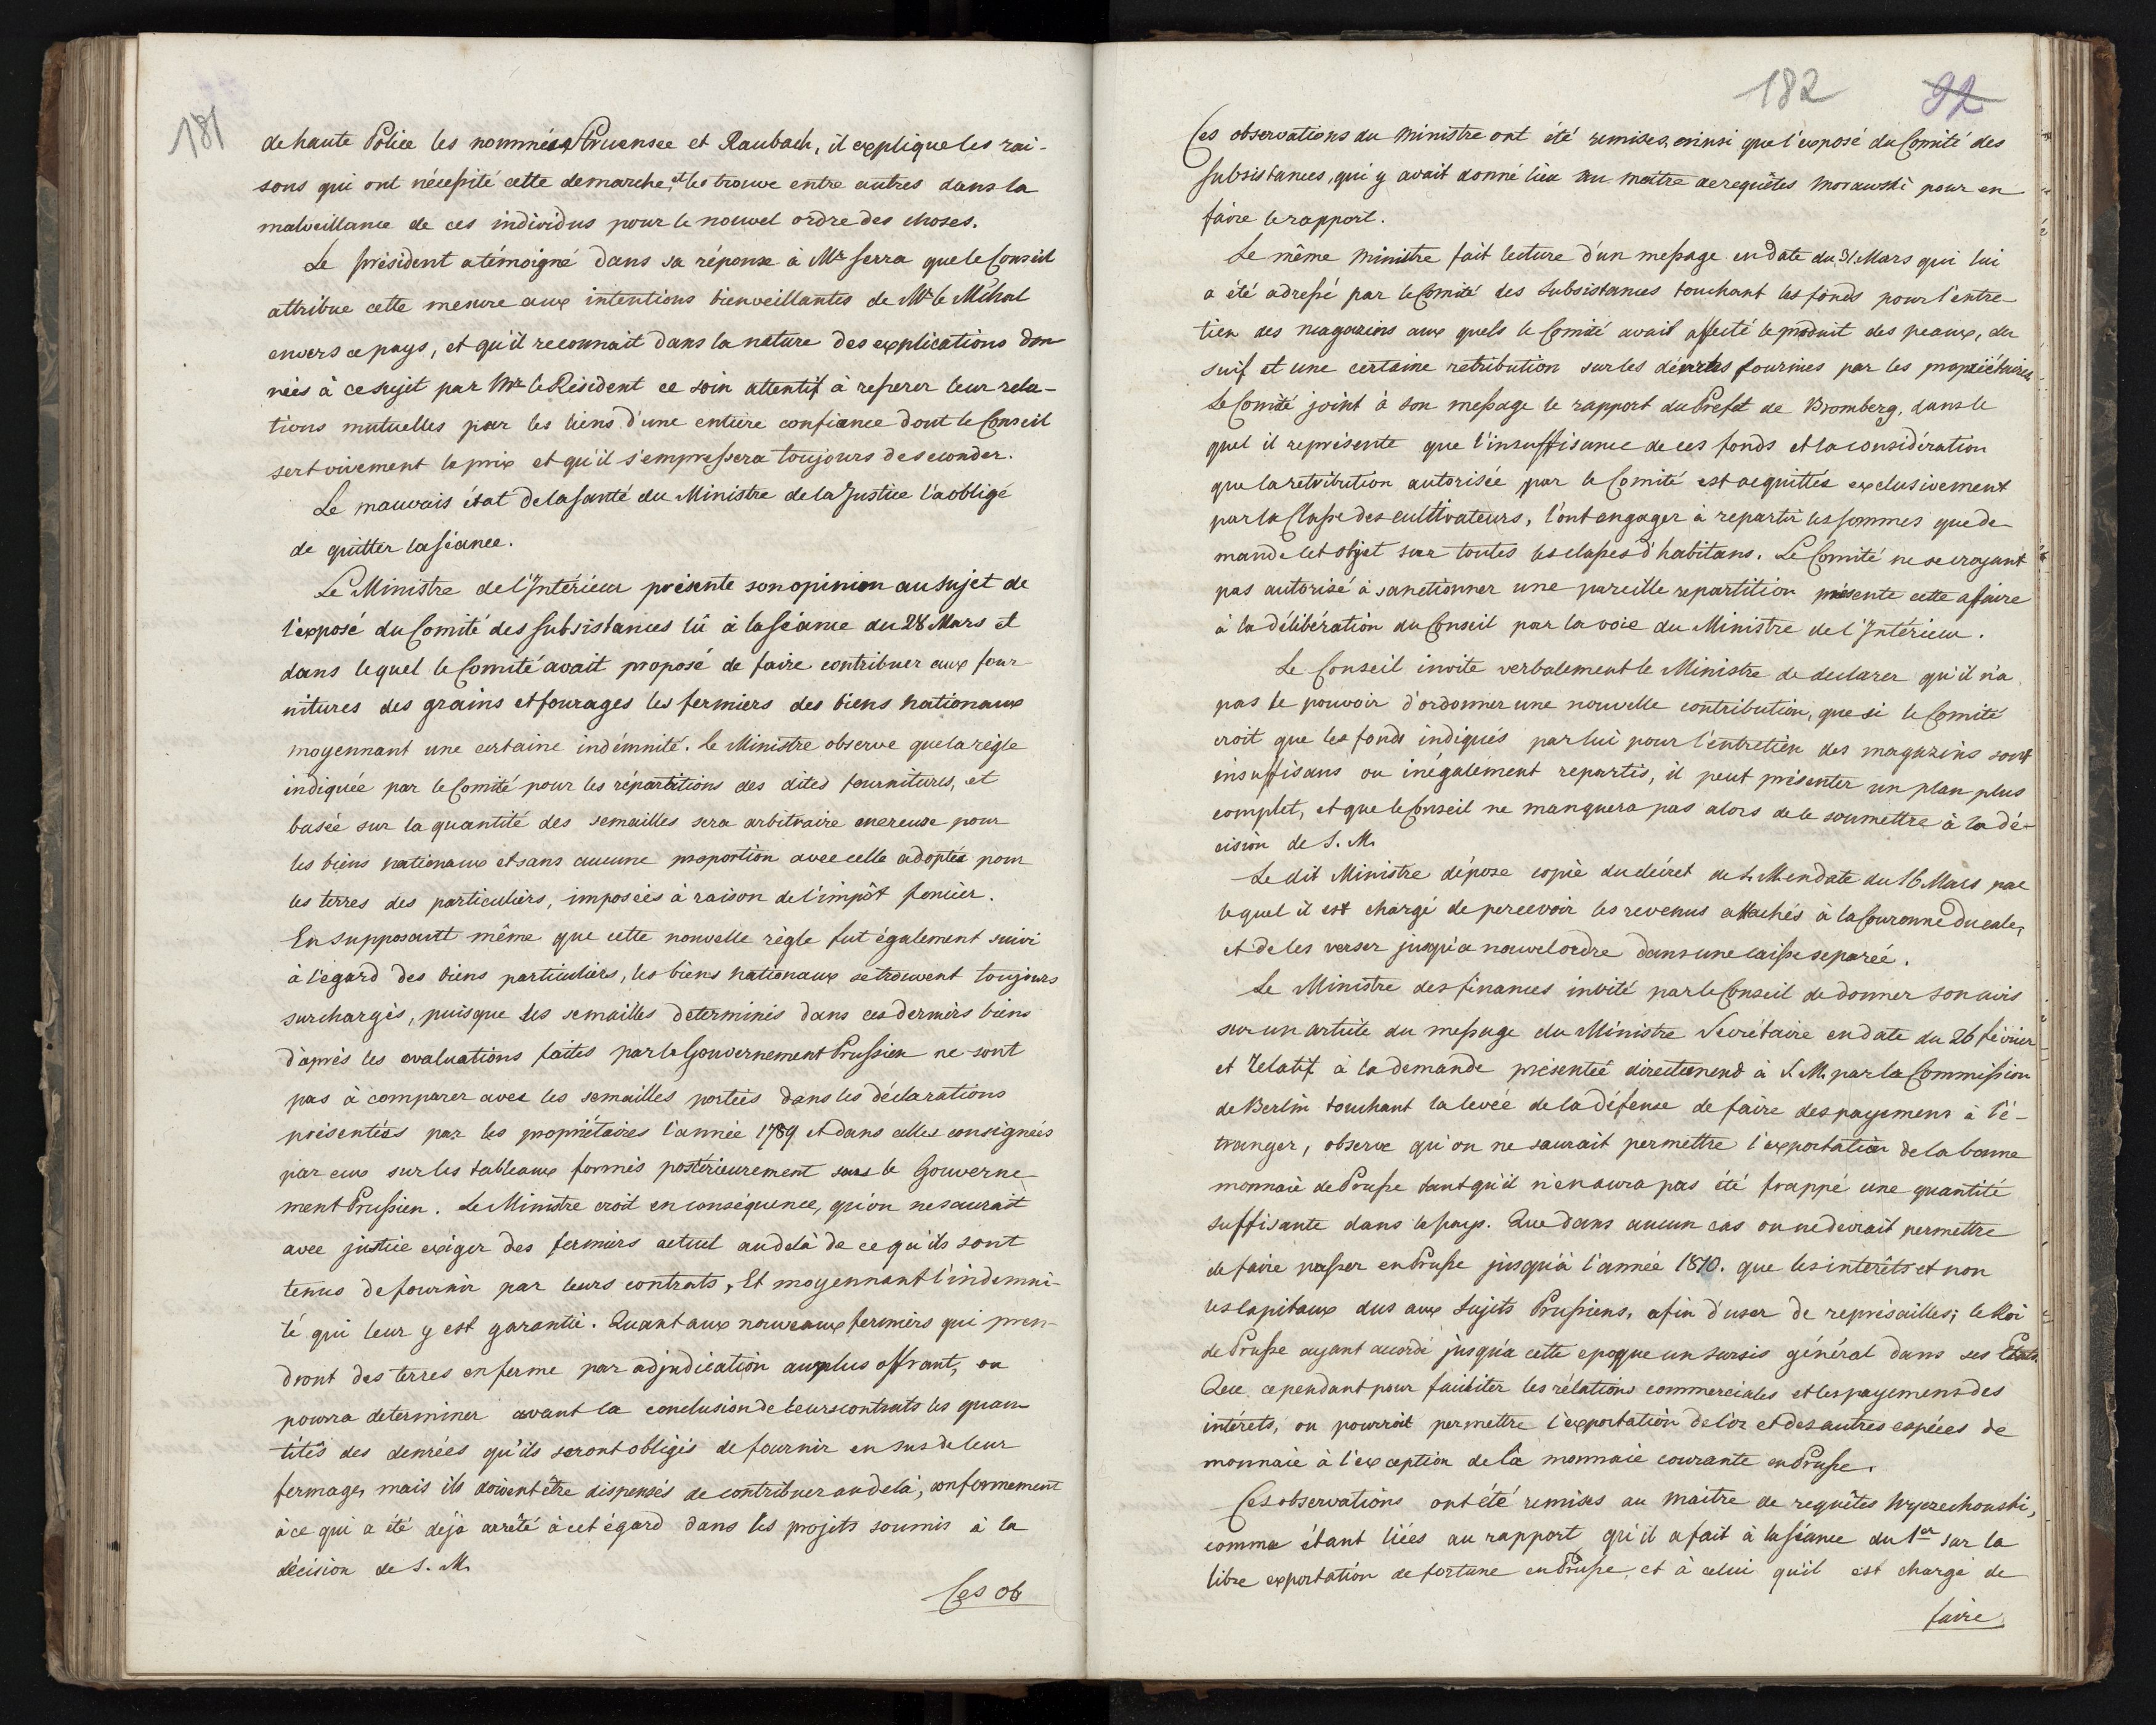 181
de haute Police les nommées Struensee et Raubach, il explique les rai-
sons qui ont nécessité cette demarche, et les trouve entre autres dans la
malveillance de ces individus pour le nouvel ordre des choses.
Le président a témoigné dans sa réponse à Mr Serra que le Conseil
attribue cette mesure aux intentions bienveillantes de Mr le Mchal
envers ce pays, et qu'il reconnait dans la nature des explications don
nées à ce sujet par Mr le Résident ce soin attentif à resserer leur rela-
tions mutuelles par les liens d'une entière confiance dont le Conseil
sent vivement le prix et qu'il s'empressera toujours de seconder.
Le mauvais état de la santé du Ministre de la Justice l'a obligé
de quitter la séance.
Le Ministre de l'Intérieur présente son opinion au sujet de
l'exposé du Comité des subsistances lû à la séance du 28 Mars et
dans lequel le Comité avait proposé de faire contribuer aux four
nitures des grains et fourages les fermiers des biens nationaux
moyennant une certaine indémnité. le Ministre observe que la règle
indiquée par le Comité pour les répartitions des dites fournitures, et
basée sur la quantité des semailles sera arbitraire onereuse pour
les biens nationaux et sans aucune proportion avec celle adoptée pour
les terres des particuliers, imposées à raison de l'impôt foncier.
En supposant même que cette nouvelle règle fut également suivi
à l'egard des biens particuliers, les biens nationaux se trouvent toujours
surchargés, puisque les semailles determinés dans ces derniers biens
d'après les evaluations faites par le Gouvernement Prussien ne sont
pas à comparer avec les semailles portées dans les déclarations
présentées par les propriétaires l'année 1789 et dans celles consignées
par eux sur les tableaux formés postérieurement sous le Gouverne-
ment Prussien. Le Ministre croit en conséquence, qu'on ne saurait
avec justice exiger des fermiers actuel au delà de ce qu'ils sont
tenus de fournir par leurs contrats, Et moyennant l'indemni-
té qui leur y est garantie. Quant aux nouveaux fermiers qui pren-
dront des terres en ferme par adjudication au plus offrant, on
pourra determiner avant la conclusion de leurs contrats les quan
tités des denrées qu'ils seront obligés de fournir en sus de leur
fermage, mais ils doivent être dispensés de contribuer au delà, conformement
à ce qui a été déjà arrêté à cet égard dans les projets soumis à la
décision de S. M.
Ces ob
182 92
Ces observations du Ministre ont été remises, ainsi que l'exposé du Comité des
subsistances, qui y avait donné lieu au maitre de requêtes Morawski pour en
faire le rapport.
Le même Ministre fait lecture d'un message en date du 31 Mars qui lui
a été adressé par le Comité des subsistances touchant les fonds pour l'entre-
tien des magazins aux quels le Comité avait affecté le produit des peaux, du
suif et une certaine retribution sur les denrées fournies par les propriétaires
Le Comité joint à son message le rapport du Prefet de Bromberg, dans le
quel il représente que l'insuffisance de ces fonds et la considération
que la retribution autorisée par le Comité est acquittée exclusivement
par la Classe des cultivateurs, l'ont engager à repartir les sommes que de
mande cet objet sur toutes les classes d'habitans. Le Comité ne se croyant
pas autorisé à sanctionner une pareille repartition présente cette affaire
à la délibération du Conseil par la voie du Ministre de l'Intérieur.
Le Conseil invite verbalement le Ministre de declarer qu'il n'a
pas le pouvoir d'ordonner une nouvelle contribution, que si le Comité
croit que les fonds indiqués par lui pour l'entretien des magazins sont
insuffisans ou inégalement repartis, il peut présenter un plan plus
complet, et que le Conseil ne manquera pas alors de le soumettre à la dé-
cision de S. M.
Le dit Ministre dépose copie du décret de S. M. en date du 16 Mars par
lequel il est chargé de percevoir les revenus attachés à la Couronne Ducale,
et de les verser jusqu'à nouvel ordre dans une caisse separée.
Le Ministre des finances invité par le Conseil de donner son avis
sur un article du message du Ministre Secrétaire en date du 26 février
et relatif à la demande présentée directement à S. M. par la Commission
de Berlin touchant la levée de la défense de faire des payemens à l'é-
tranger, observe qu'on ne saurait permettre l'exportation de la bonne
monnaie de Prusse tant qu'il n'en aura pas été frappé une quantité
suffisante dans le pays. Que dans aucun cas on ne devrait permettre
de faire passer en Prusse jusqu'à l'année 1810. que les intérêts et non
les Capitaux dus aux Sujets Prussiens, afin d'user de représailles; le Roi
de Prusse ayant accordé jusqu'à cette epoque un sursis général dans ses Etats.
Que cependant pour faciliter les rélations commerciales et les payemens des
intérets, on pourrait permettre l'exportation de l'or et des autres espèces de
monnaie à l'exception de la monnaie courante en Prusse.
Ces observations ont été remises au maitre de requêtes Wyczechowski,
comme étant liées au rapport qu'il a fait à la séance du 1er sur la
libre exportation de fortune en Prusse, et à celui qu'il est chargé de
faire